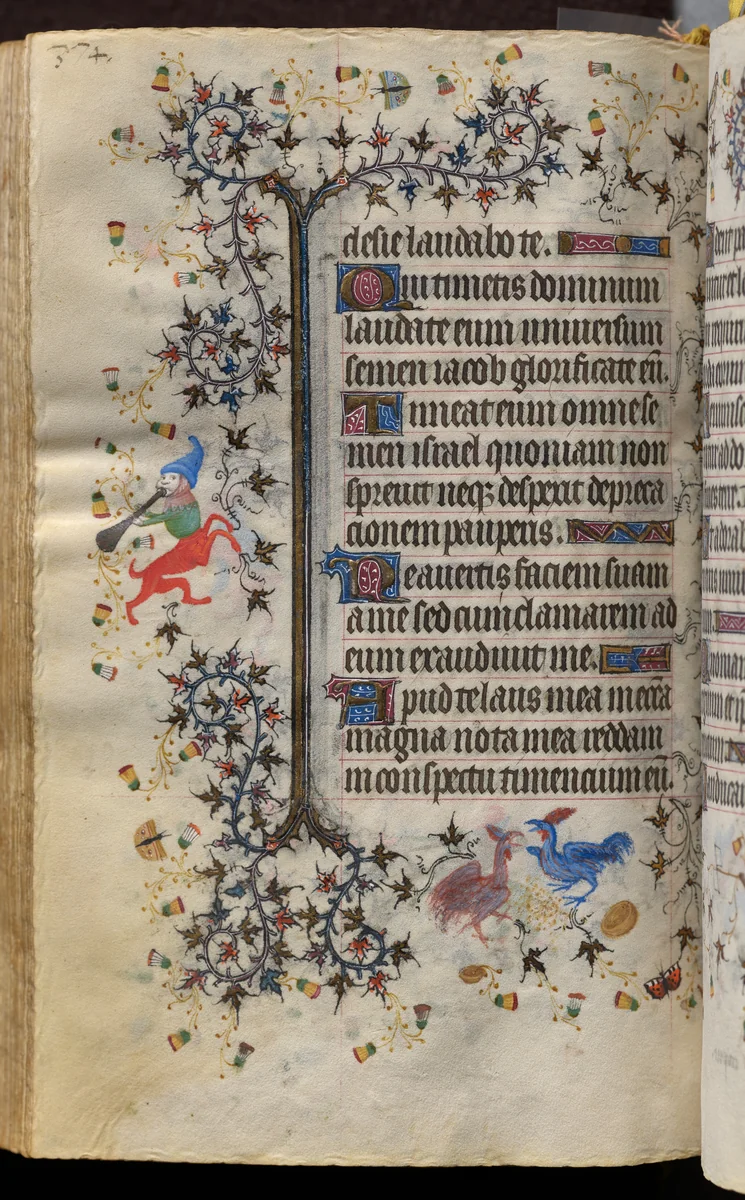 374
clesie laudabo te.
Qui timetis dominum
laudate eum uniuersum
semen iacob glorificate eū.
Timeat eum omne se
men israel quoniam non
spreuit neqꝫ despexit depreca
cionem pauperis.
Ne auertit faciem suam
a me sed cum clamarem ad
eum exaudiuit me.
Apud te laus mea in ecc̄a
magna uota mea reddam
in conspectu timencium eū.